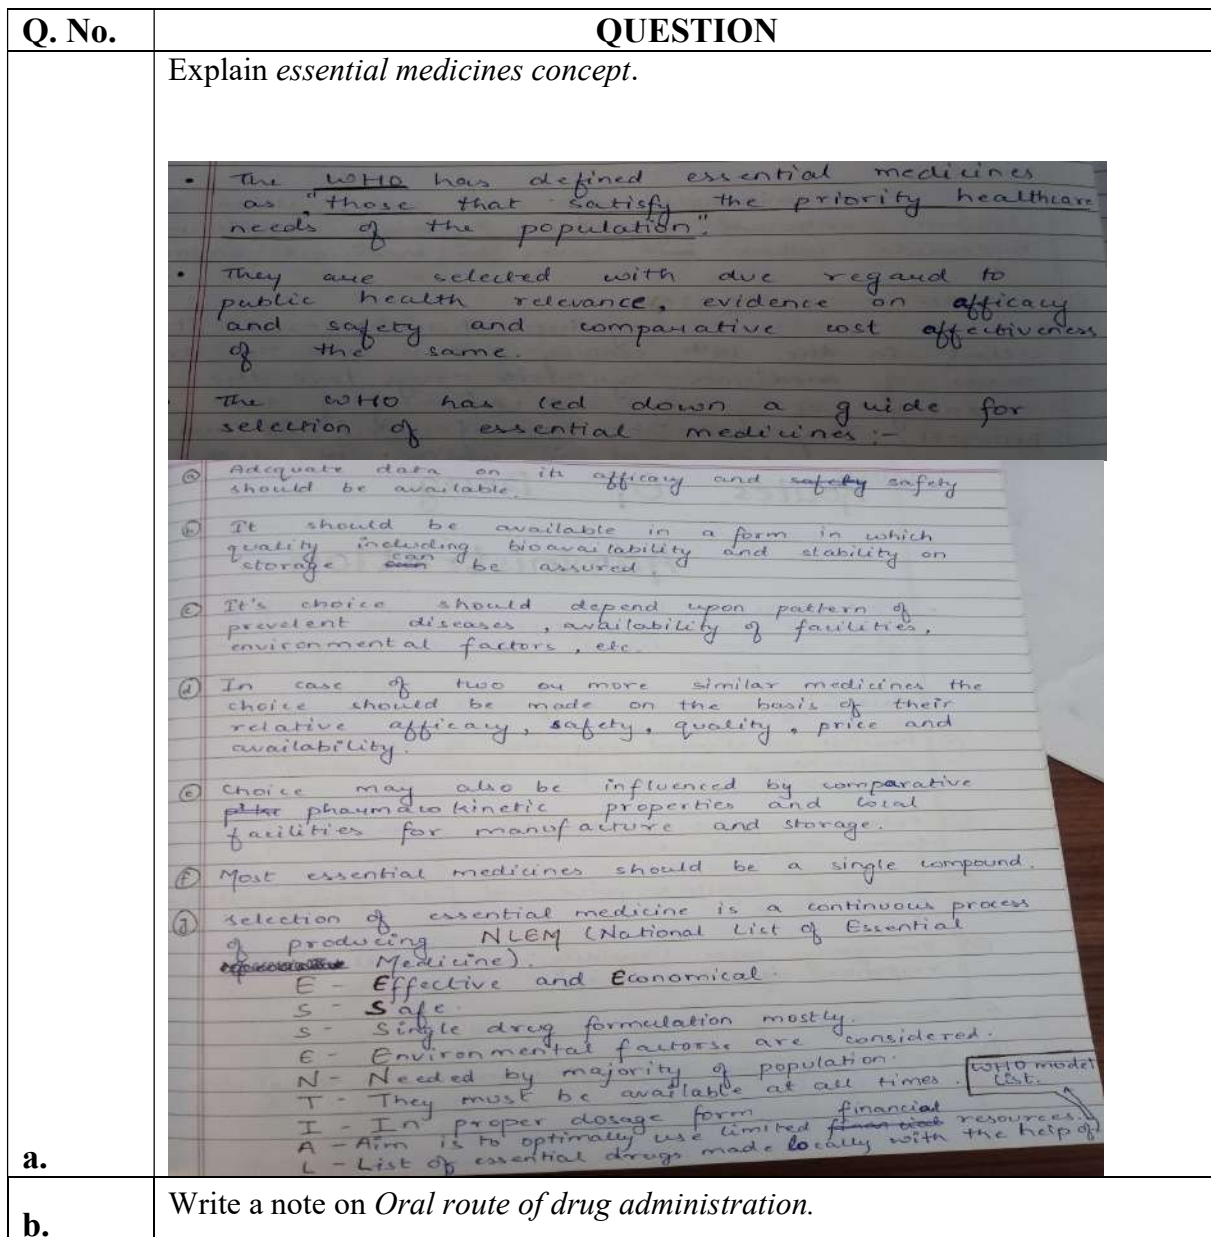 Q. No. QUESTION
Explain essential medicines concept.
• The WHO has defined essential medicines
as "those that satisfy the priority healthcare
needs of the population".
• They are selected with due regard to
public health relevance, evidence on afficacy
and safety and comparative cost affectiveness
of the same.
• The WHO has led down a guide for
selection of essential medicines :-
ⓐ Adequate data on its afficacy and safety safety
should be available.
ⓑ It should be available in a form in which
quality including bioavailability and stability on
storage can be assured.
ⓒ It's choice should depend upon pattern of
prevelent diseases, availability of facilities,
environmental factors, etc.
ⓓ In case of two or more similar medicines the
choice should be made on the basis of their
relative afficacy, safety, quality, price and
availability.
ⓔ Choice may also be influenced by comparative
pharmacokinetic properties and local
facilities for manufacture and storage.
ⓕ Most essential medicines should be a single compound.
ⓖ selection of essential medicine is a continuous process
of producing NLEM (National List of Essential
Medicine).
E - Effective and Economical.
S - Safe.
S - Single drug formulation mostly.
E - Environmental factorse are considered.
N - Needed by majority of population.
T - They must be available at all times.
WHO model
List.
I - In proper dosage form
A - Aim is to optimally use limited financial resources.
L - List of essential drugs made locally with the help of
a.
b. Write a note on Oral route of drug administration.